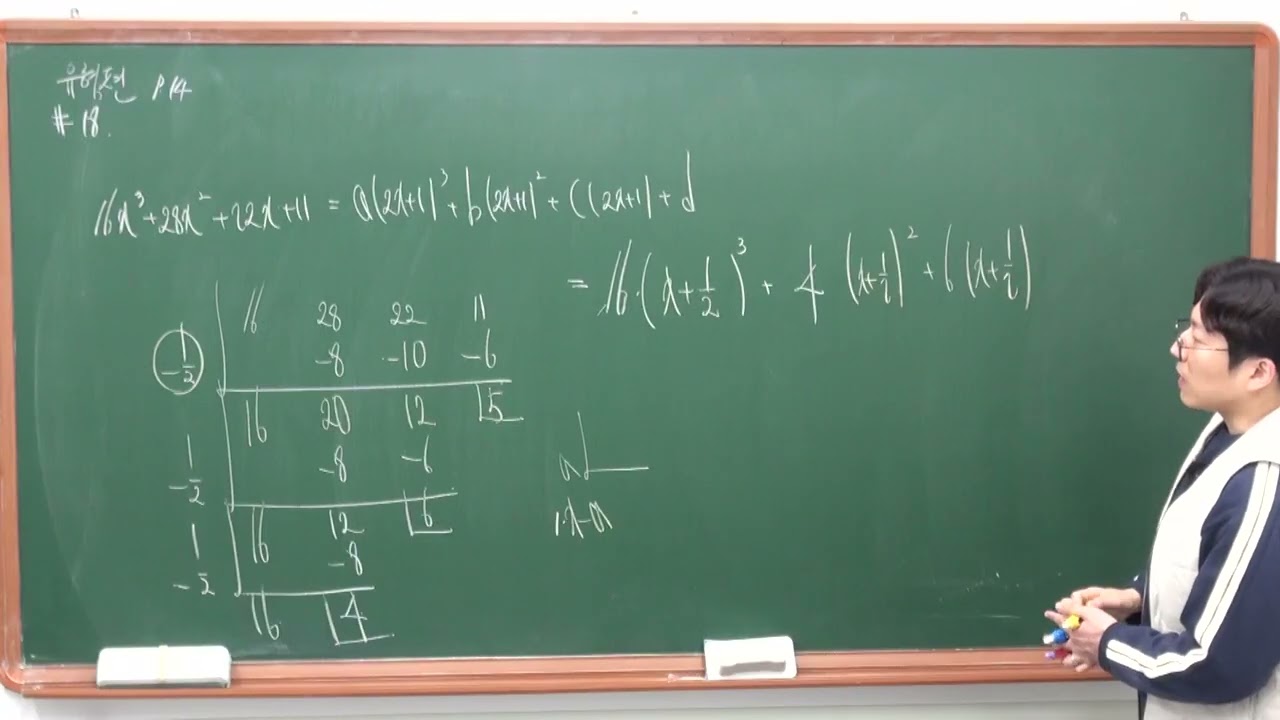 유형편 P 14
# 18.
16x³+28x²+22x+11 = a(2x+1)³+b(2x+1)²+c(2x+1)+d
= 16·(x+1/2)³+4(x+1/2)²+6(x+1/2)
16 28 22 11
-1/2 -8 -10 -6
16 20 12 5
-1/2 -8 -6
16 12 6
-1/2 -8
16 4
a
1·x-a